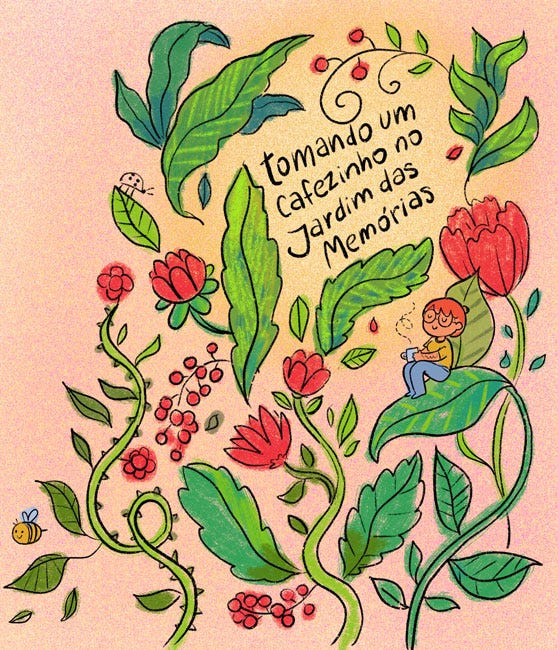 tomando um
cafezinho no
Jardim das
Memórias